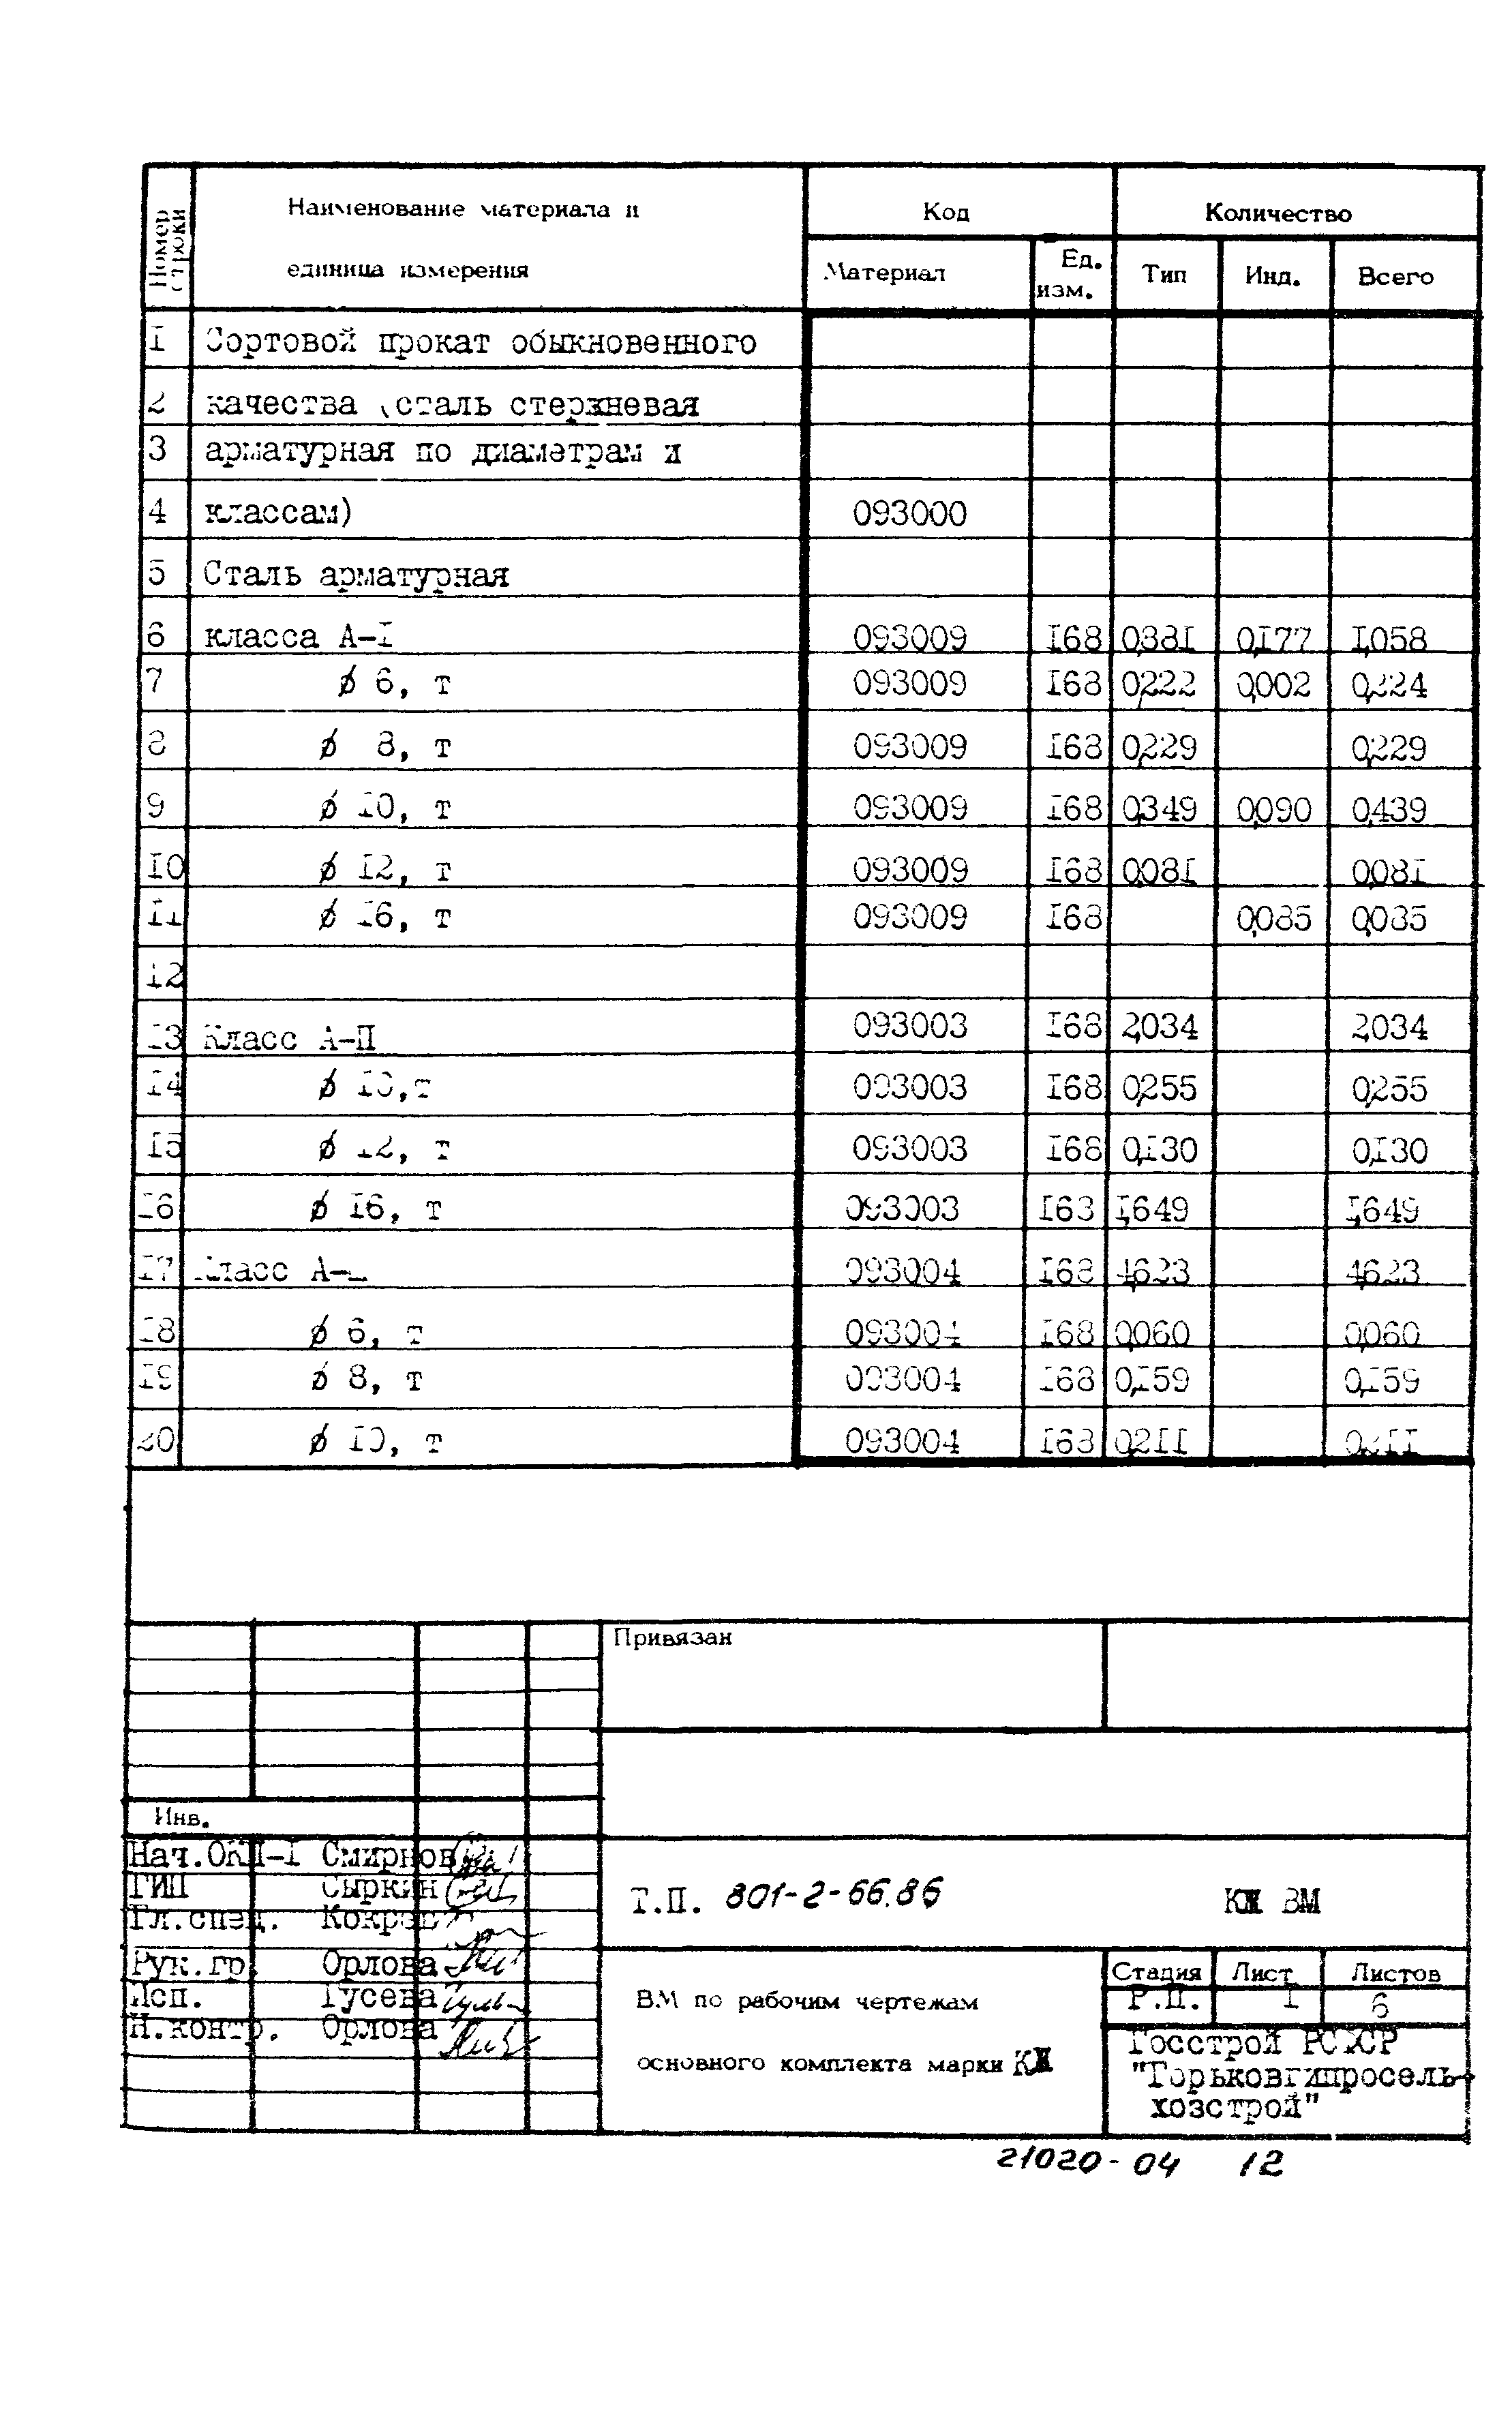 Номер строки | Наименование материала и единица измерения | Код | Количество
Материал | Ед. изм. | Тип | Инд. | Всего
I Сортовой прокат обыкновенного
2 качества (сталь стержневая
3 арматурная по диаметрам и
4 классам) 093000
5 Сталь арматурная
6 класса А-I 093009 I68 0,88I 0,I77 I,058
7 ø 6, т 093009 I68 0,222 0,002 0,224
8 ø 8, т 093009 I68 0,229 0,229
9 ø I0, т 093009 I68 0,349 0,090 0,439
I0 ø I2, т 093009 I68 0,08I 0,08I
II ø I6, т 093009 I68 0,085 0,085
I2
I3 Класс А-П 093003 I68 2,034 2,034
I4 ø I0,т 093003 I68 0,255 0,255
I5 ø I2, т 093003 I68 0,I30 0,I30
I6 ø I6, т 093003 I68 I,649 I,649
I7 Класс 093004 I68 4,623 4,623
I8 ø 6, т 093004 I68 0,060 0,060
I9 ø 8, т 093004 I68 0,I59 0,I59
20 ø I0, т 093004 I68 0,2II 0,2II
Привязан
Инв.
Нач.ОКП-I Смирнов
ГИП Сыркин
Гл.спец.
Рук.гр. Орлова
Исп. Гусева
Н.контр. Орлова
Т.П. 801-2-66.86 КЖ ВМ
ВМ по рабочим чертежам
основного комплекта марки КЖ
Стадия Лист Листов
Р.П. I 6
Госстрой РСФСР
"Горьковгипросель-
хозстрой"
21020-04 12